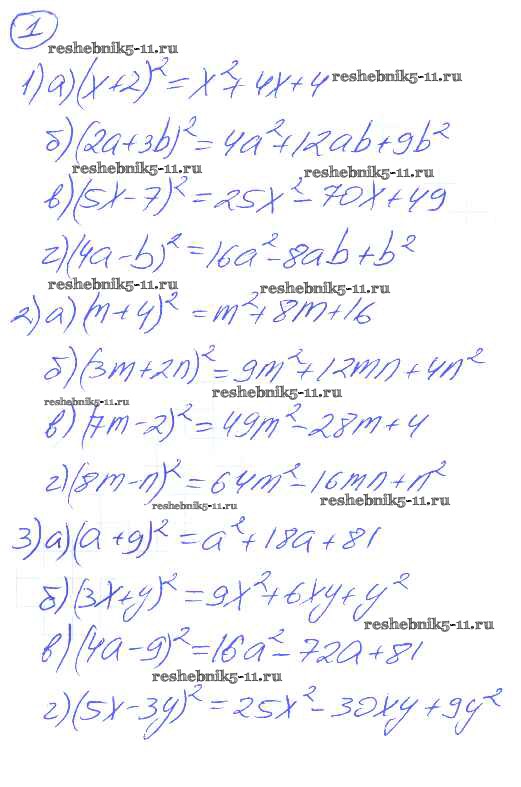 1
reshebnik5-11.ru
1) а) (x+2)² = x² + 4x + 4 reshebnik5-11.ru
б) (2a+3b)² = 4a² + 12ab + 9b²
reshebnik5-11.ru reshebnik5-11.ru
в) (5x-7)² = 25x² - 70x + 49
г) (4a-b)² = 16a² - 8ab + b²
reshebnik5-11.ru reshebnik5-11.ru
2) а) (m+4)² = m² + 8m + 16
б) (3m+2n)² = 9m² + 12mn + 4n²
reshebnik5-11.ru reshebnik5-11.ru
в) (7m-2)² = 49m² - 28m + 4
г) (8m-n)² = 64m² - 16mn + n²
reshebnik5-11.ru reshebnik5-11.ru
3) а) (a+9)² = a² + 18a + 81
б) (3x+y)² = 9x² + 6xy + y²
reshebnik5-11.ru
в) (4a-9)² = 16a² - 72a + 81
reshebnik5-11.ru
г) (5x-3y)² = 25x² - 30xy + 9y²